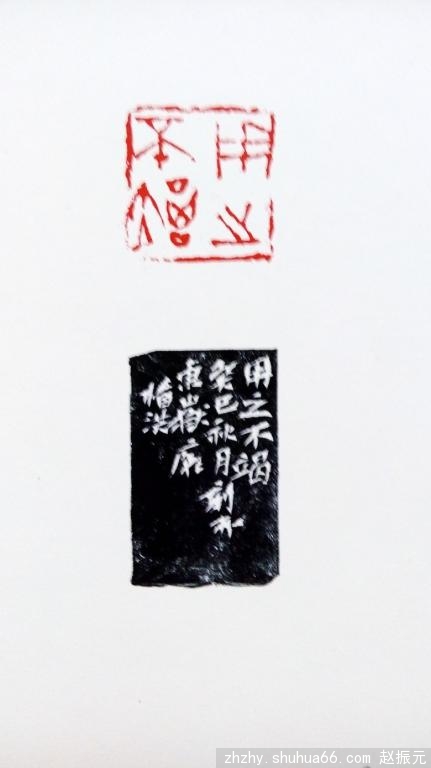 用之
不竭
用之不竭
癸巳秋月刻於
東嶽
zhzhy.shuhua66.com 赵振元